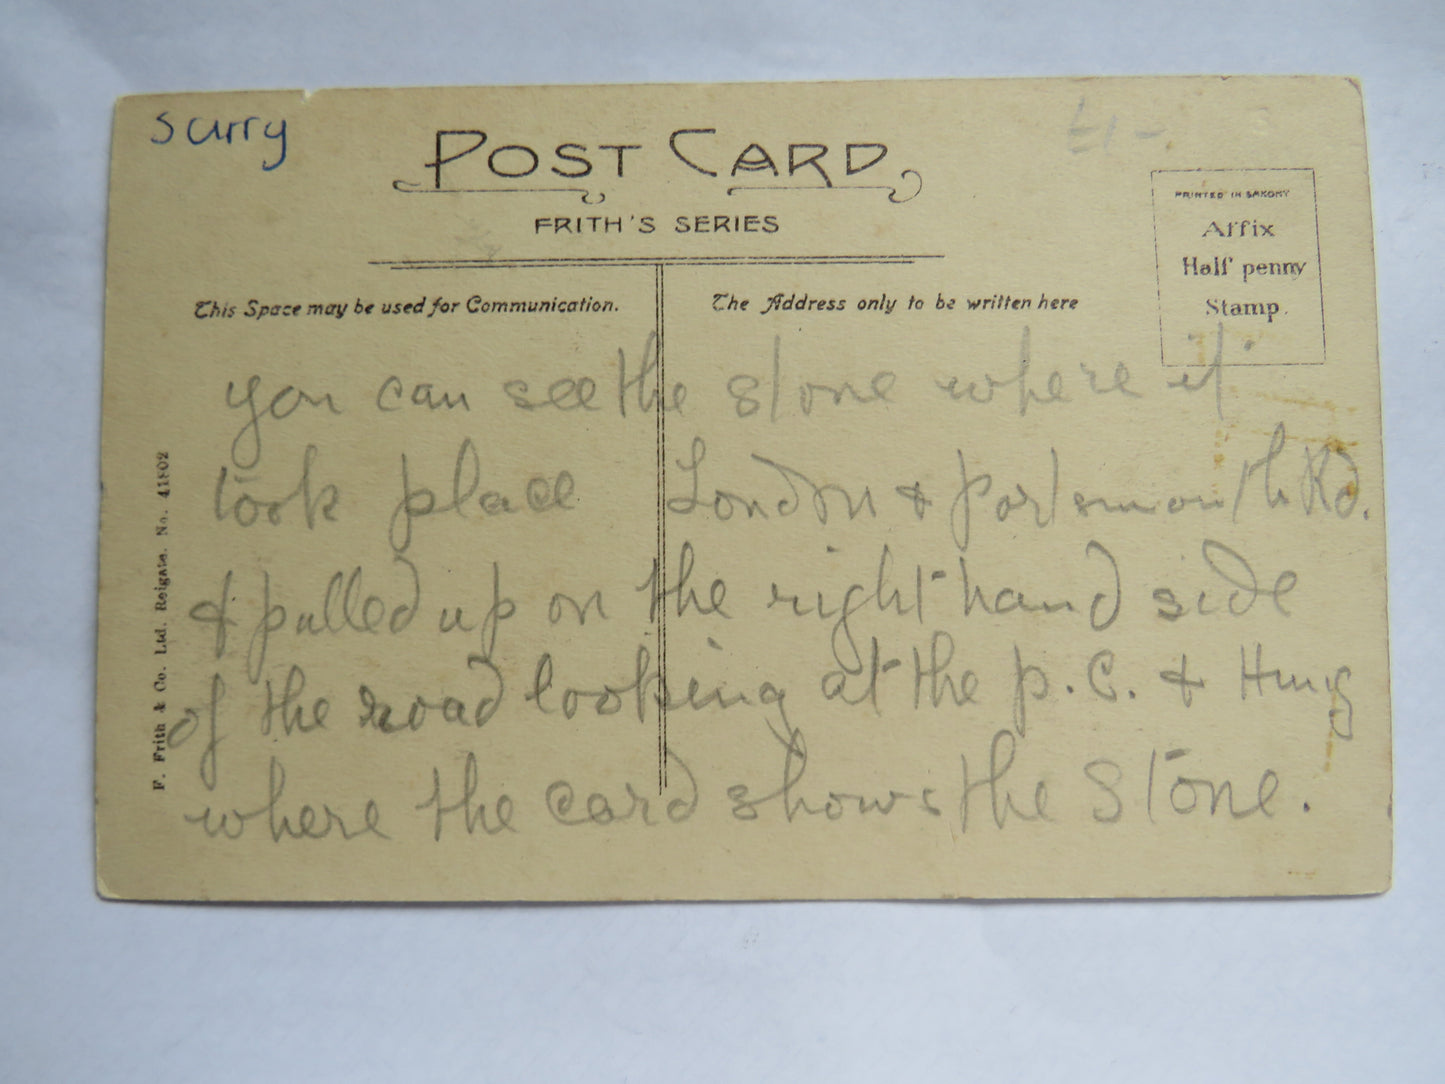 surry
£1-
POST CARD
FRITH'S SERIES
PRINTED IN SAXONY
Affix
Half penny
Stamp.
This Space may be used for Communication.
The Address only to be written here
you can see the stone where it
took place London & Portsmouth Rd.
& pulled up on the right hand side
of the road looking at the p.c. &
where the card shows the Stone.
F. Frith & Co. Ltd. Reigate. No. 41802